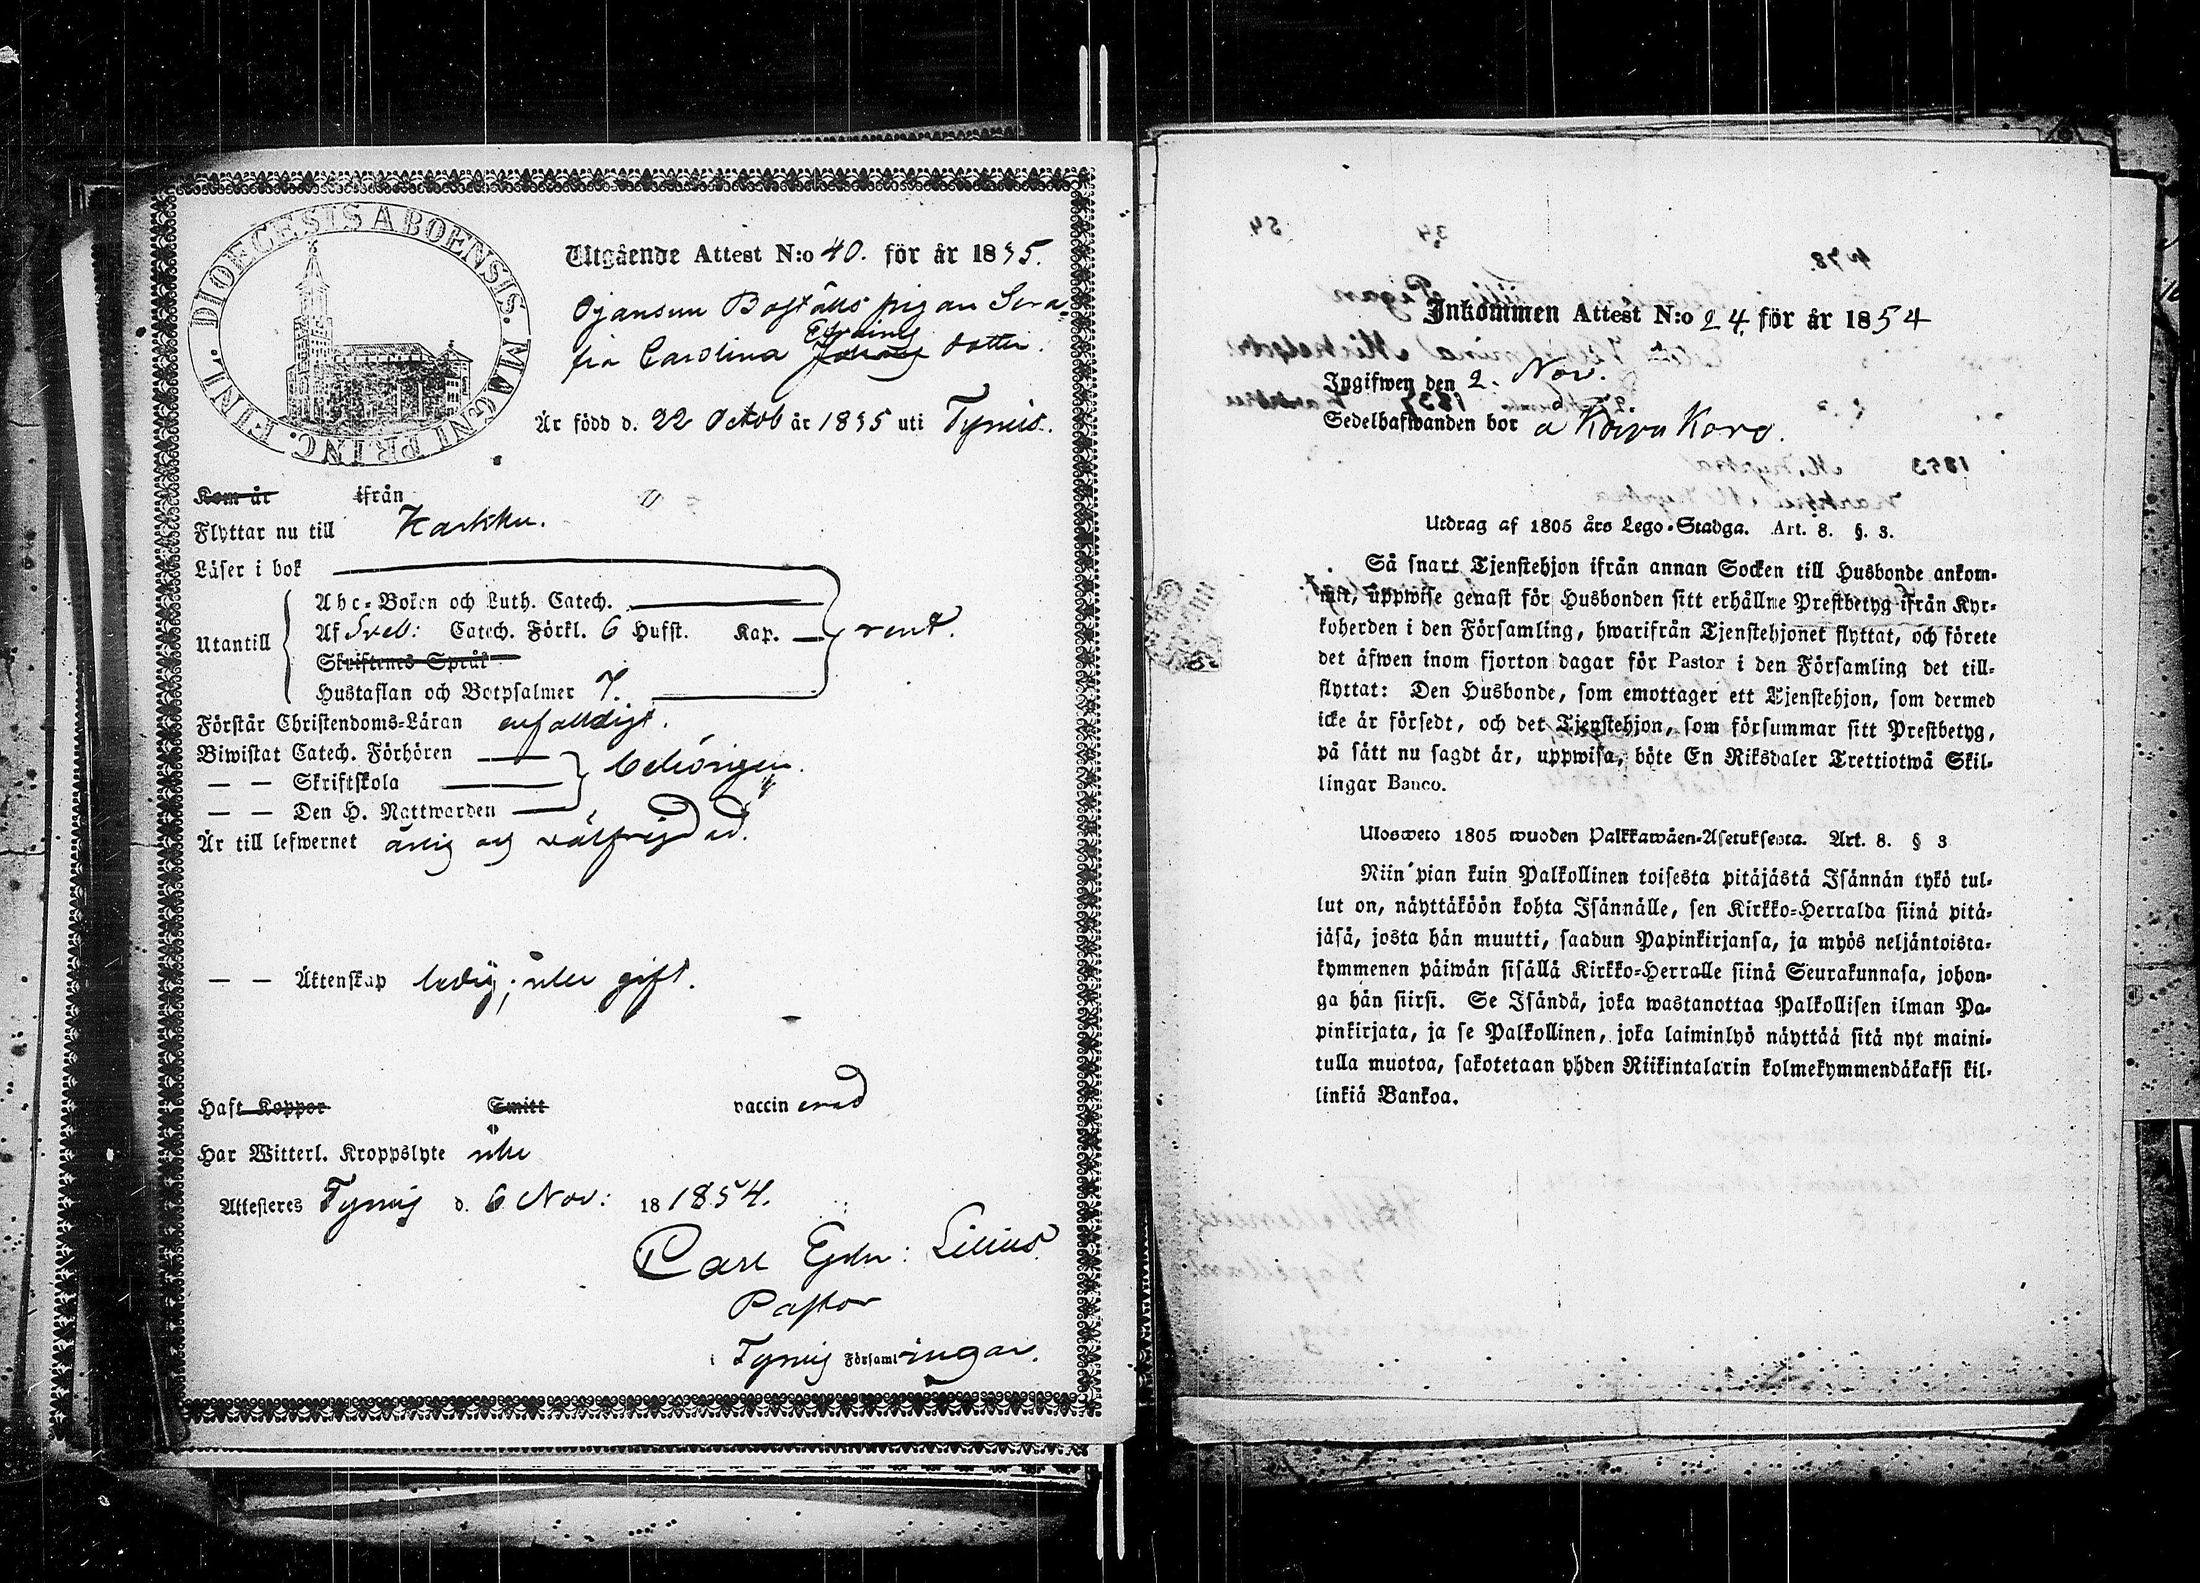 DIOECESIS ABOENSIS. MAGNI PRINC. FINL.
Utgående Attest N:o 40. för år 1835.
Ojansuu Boställs pigan Sera-
fia Carolina Efraims dotter.
Är född d. 22 Octob år 1835 uti Tyrvis.
Kom år ifrån
Flyttar nu till Karkku.
Läser i bok
Abc-Boken och Luth. Catech.
Utantill Af Sveb: Catech. Förkl. 6 Hufst. Kap. rent.
Skriftenes Språk
Hustaflan och Botpsalmer 7.
Förstår Christendoms-Läran enfalldigt.
Biwistat Catech. Förhören
— — Skriftskola behörigen.
— — Den H. Nattwarden
Är till lefwernet ärlig och välfrejdad.
— — Äktenskap ledig; icke gift.
Haft Koppor Smitt vaccinerad
Har Witterl. Kroppslyte icke
Attesteres Tyrvis d. 6 Nov: 18 1854.
Carl Lilius.
Pastor
i Tyrvis Församlingar.
Inkommen Attest N:o 24 för år 1854
Ingifwen den 2. Nov.
Sedelhafwanden bor å
Utdrag af 1805 års Lego-Stadga. Art. 8. §. 3.
Så snart Tjenstehjon ifrån annan Socken till Husbonde ankom-
mit, uppwise genast för Husbonden sitt erhållne Prestbetyg ifrån Kyr-
koherden i den Församling, hwarifrån Tjenstehjonet flyttat, och förete
det äfwen inom fjorton dagar för Pastor i den Församling det till-
flyttat: Den Husbonde, som emottager ett Tjenstehjon, som dermed
icke är försedt, och det Tjenstehjon, som försummar sitt Prestbetyg,
på sätt nu sagdt är, uppwisa, böte En Riksdaler Trettiotwå Skil-
lingar Banco.
Ulosweto 1805 wuoden Palkkawäen-Asetuksesta. Art. 8. § 3
Niin pian kuin Palkollinen toisesta pitäjästä Isännän tykö tul-
lut on, näyttäköön kohta Isännälle, sen Kirkko-Herralda siinä pitä-
jäsä, josta hän muutti, saadun Papinkirjansa, ja myös neljäntoista-
kymmenen päiwän sisällä Kirkko-Herralle siinä Seurakunnasa, johon-
ga hän siirsi. Se Isändä, joka wastanottaa Palkollisen ilman Pa-
pinkirjata, ja se Palkollinen, joka laiminlyö näyttää sitä nyt maini-
tulla muotoa, sakotetaan yhden Riikintalarin kolmekymmendäkaksi kil-
linkiä Bankoa.